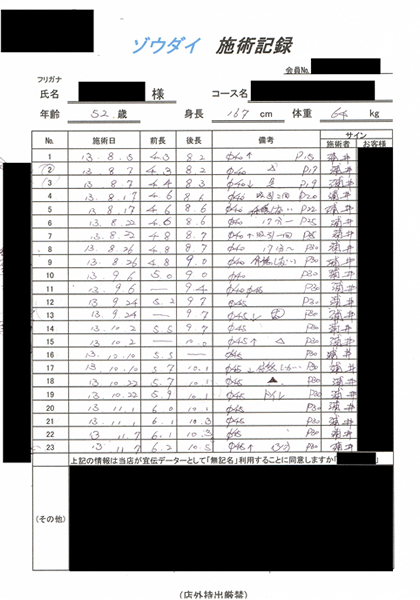 ゾウダイ 施術記録
会員No.
フリガナ
氏名 様 コース名
年齢 52 歳 身長 167 cm 体重 64 kg
No. 施術日 前長 後長 備考 サイン
施術者 お客様
1 13.8.5 4.3 8.2 Φ40↑ P15
2 13.8.7 4.3 8.2 Φ40 △ P17
3 13.8.7 4.4 8.3 P19
4 13.8.17 4.6 8.6 Φ40 P20
5 13.8.17 4.6 8.6 Φ40 P22
6 13.8.22 4.6 8.6 Φ40 P25
7 13.8.22 4.8 8.7
8 13.8.26 4.8 8.7 Φ40 P30
9 13.8.26 4.8 9.0 Φ40 P30
10 13.9.6 5.0 9.0 Φ40 P30
11 13.9.6 — 9.4 Φ40 Φ45 P30
12 13.9.24 5.2 9.7 Φ45
13 13.9.24 — 9.7 Φ45 P30
14 13.10.2 5.5 9.7 Φ45 P30
15 13.10.2 — 10.0 Φ45↑ △ P30
16 13.10.10 5.5 — Φ45 P30
17 13.10.10 5.7 10.1 Φ45 P30
18 13.10.22 5.7 10.1 Φ45 ▲ P30
19 13.10.22 5.9 10.1 Φ45 トイレ P30
20 13.11.1 6.0 10.1 Φ45 P30
21 13.11.1 6.1 10.3 Φ45 P30
22 13.11.7 6.1 10.3 Φ45 P30
23 13.11.7 6.2 10.5 Φ45↑ P30
上記の情報は当店が宣伝データーとして「無記名」利用することに同意しますか
(その他)
(店外持出厳禁)